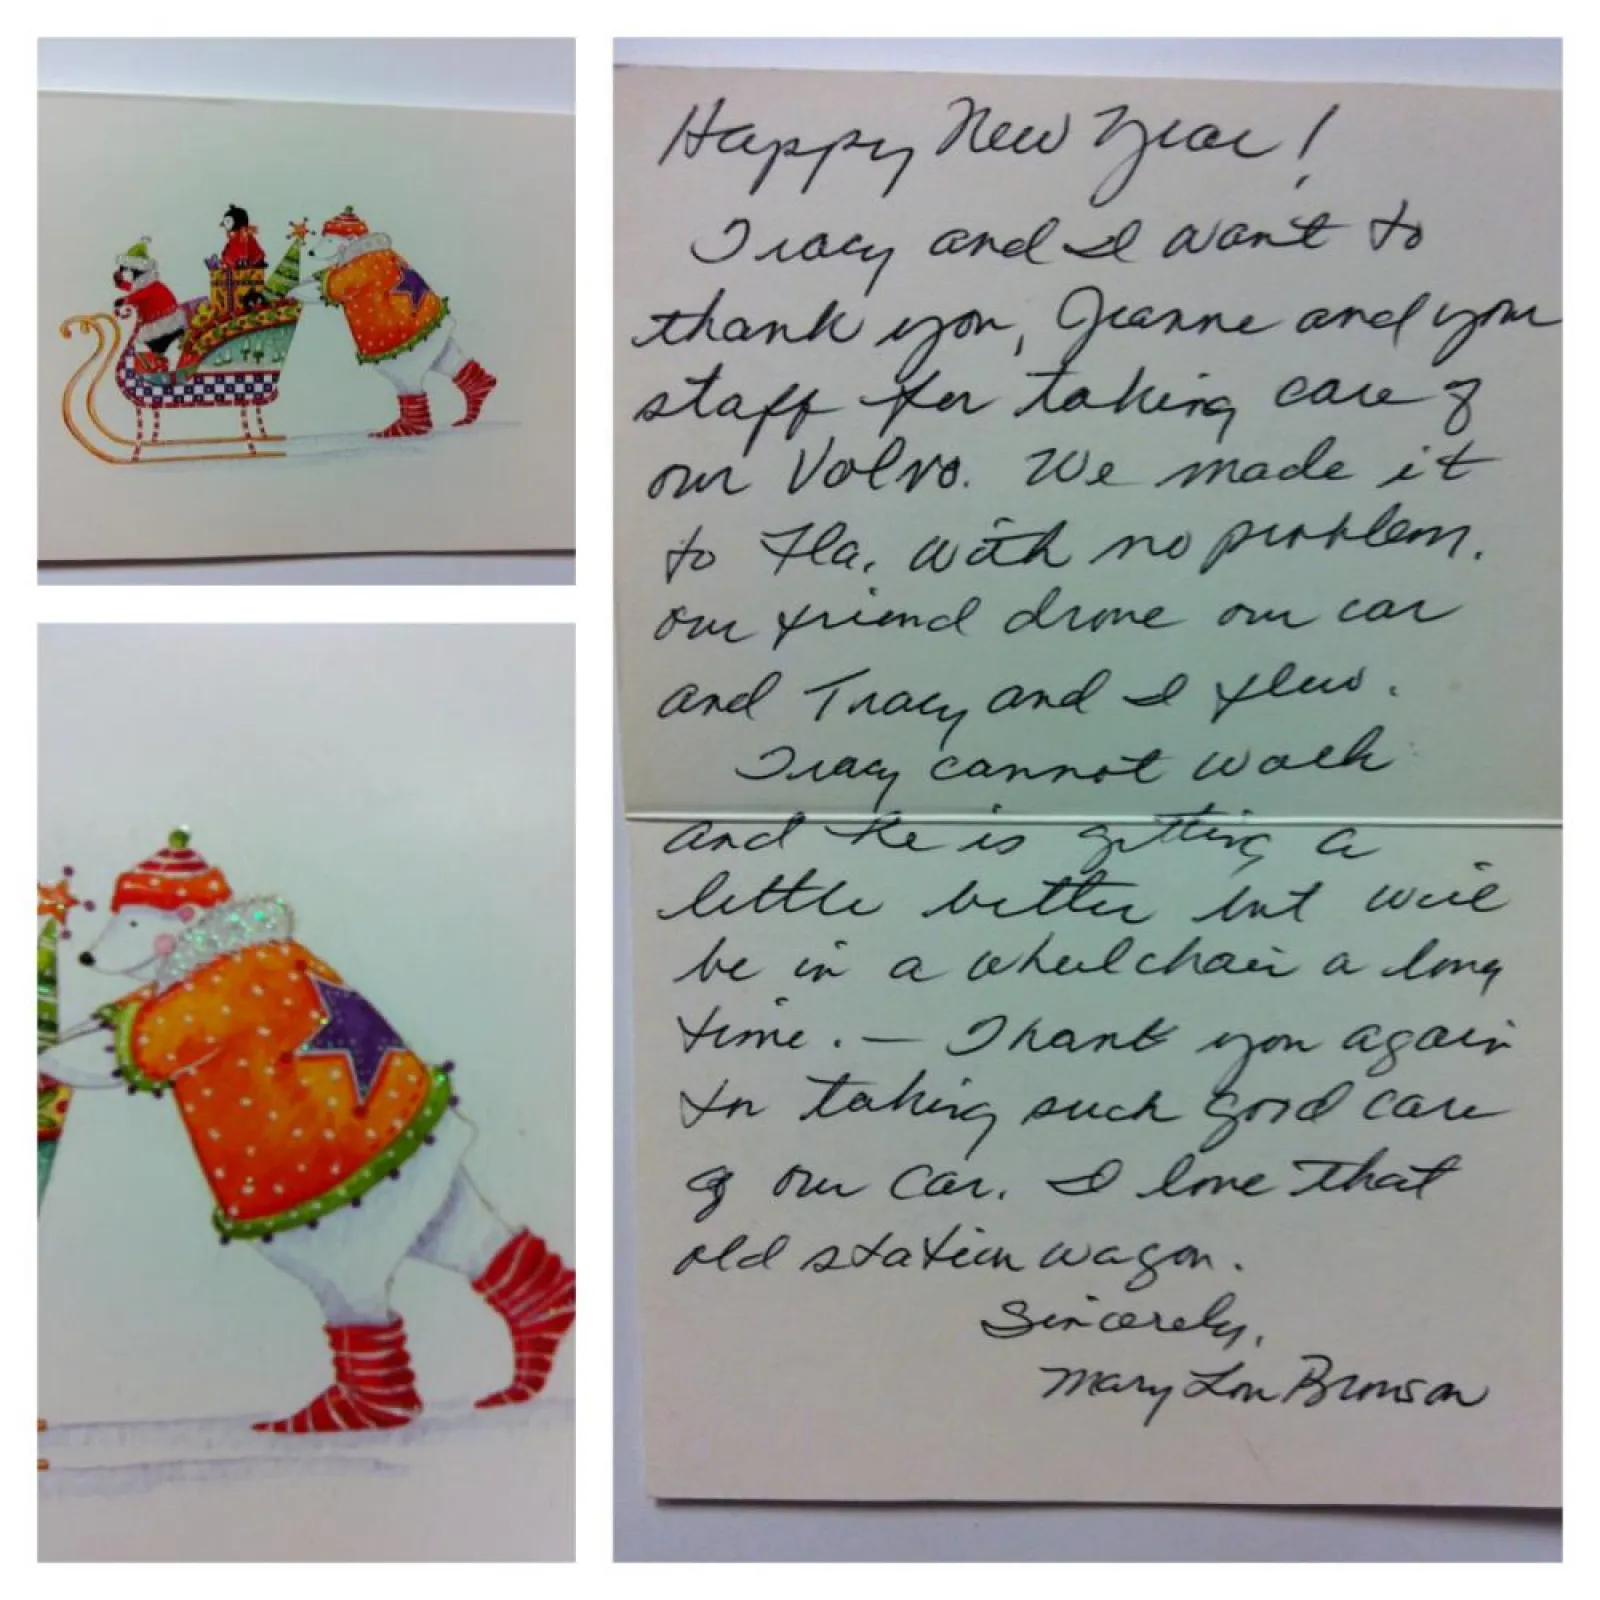 Happy New Year!
Tracy and I want to
thank you, Jeanne and your
staff for taking care of
our Volvo. We made it
to Fla. with no problem.
our friend drove our car
and Tracy and I flew.
Tracy cannot walk
and he is getting a
little better but will
be in a wheelchair a long
time. — Thank you again
for taking such good care
of our car. I love that
old station wagon.
Sincerely,
Mary Lou Bronson